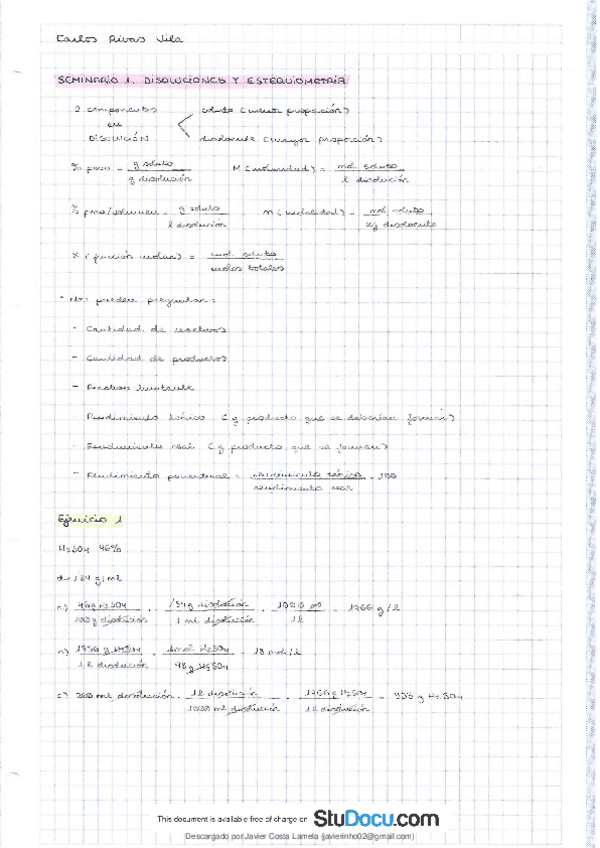 Carlos Rivas Vila
SEMINARIO 1. DISOLUCIONES Y ESTEQUIOMETRÍA
2 componentes
en
DISOLUCIÓN
soluto (menor proporción)
disolvente (mayor proporción)
% peso = g soluto / g disolución
M (molaridad) = mol soluto / l disolución
% peso/volumen = g soluto / l disolución
m (molalidad) = mol soluto / kg disolvente
X (fracción molar) = mol soluto / moles totales
* Nos pueden preguntar:
- Cantidad de reactivos
- Cantidad de productos
- Reactivo limitante
- Rendimiento teórico (g producto que se deberían formar)
- Rendimiento real (g producto que se forman)
- Rendimiento porcentual = rendimiento teórico / rendimiento real · 100
Ejercicio 1
H2SO4 96%
d = 1'84 g/ml
a) 96 g H2SO4 / 100 g disolución · 1'84 g disolución / 1 ml disolución · 1000 ml / 1 l = 1766 g/l
1 mol H2SO4 / 98 g H2SO4 = 18 mol/l
c) disolución · 1 l disolución / 1000 ml disolución · H2SO4 / 1 l disolución = g H2SO4
This document is available free of charge on StuDocu.com
Descargado por Javier Costa Lamela (javierinho02@gmail.com)